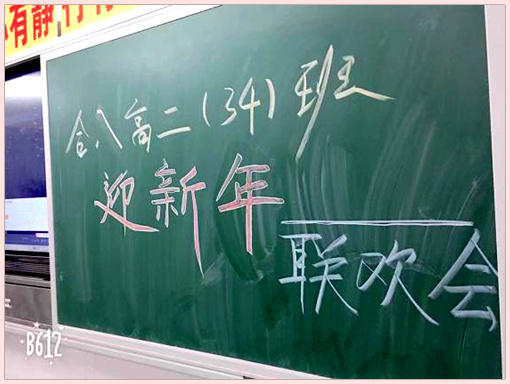 有静
金八高二(34)班
迎新年
联欢会
B612